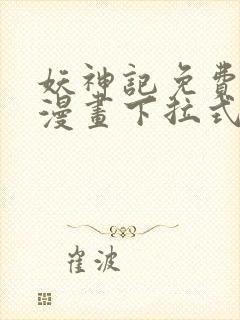 妖神記免費
漫畫下拉式
崔波